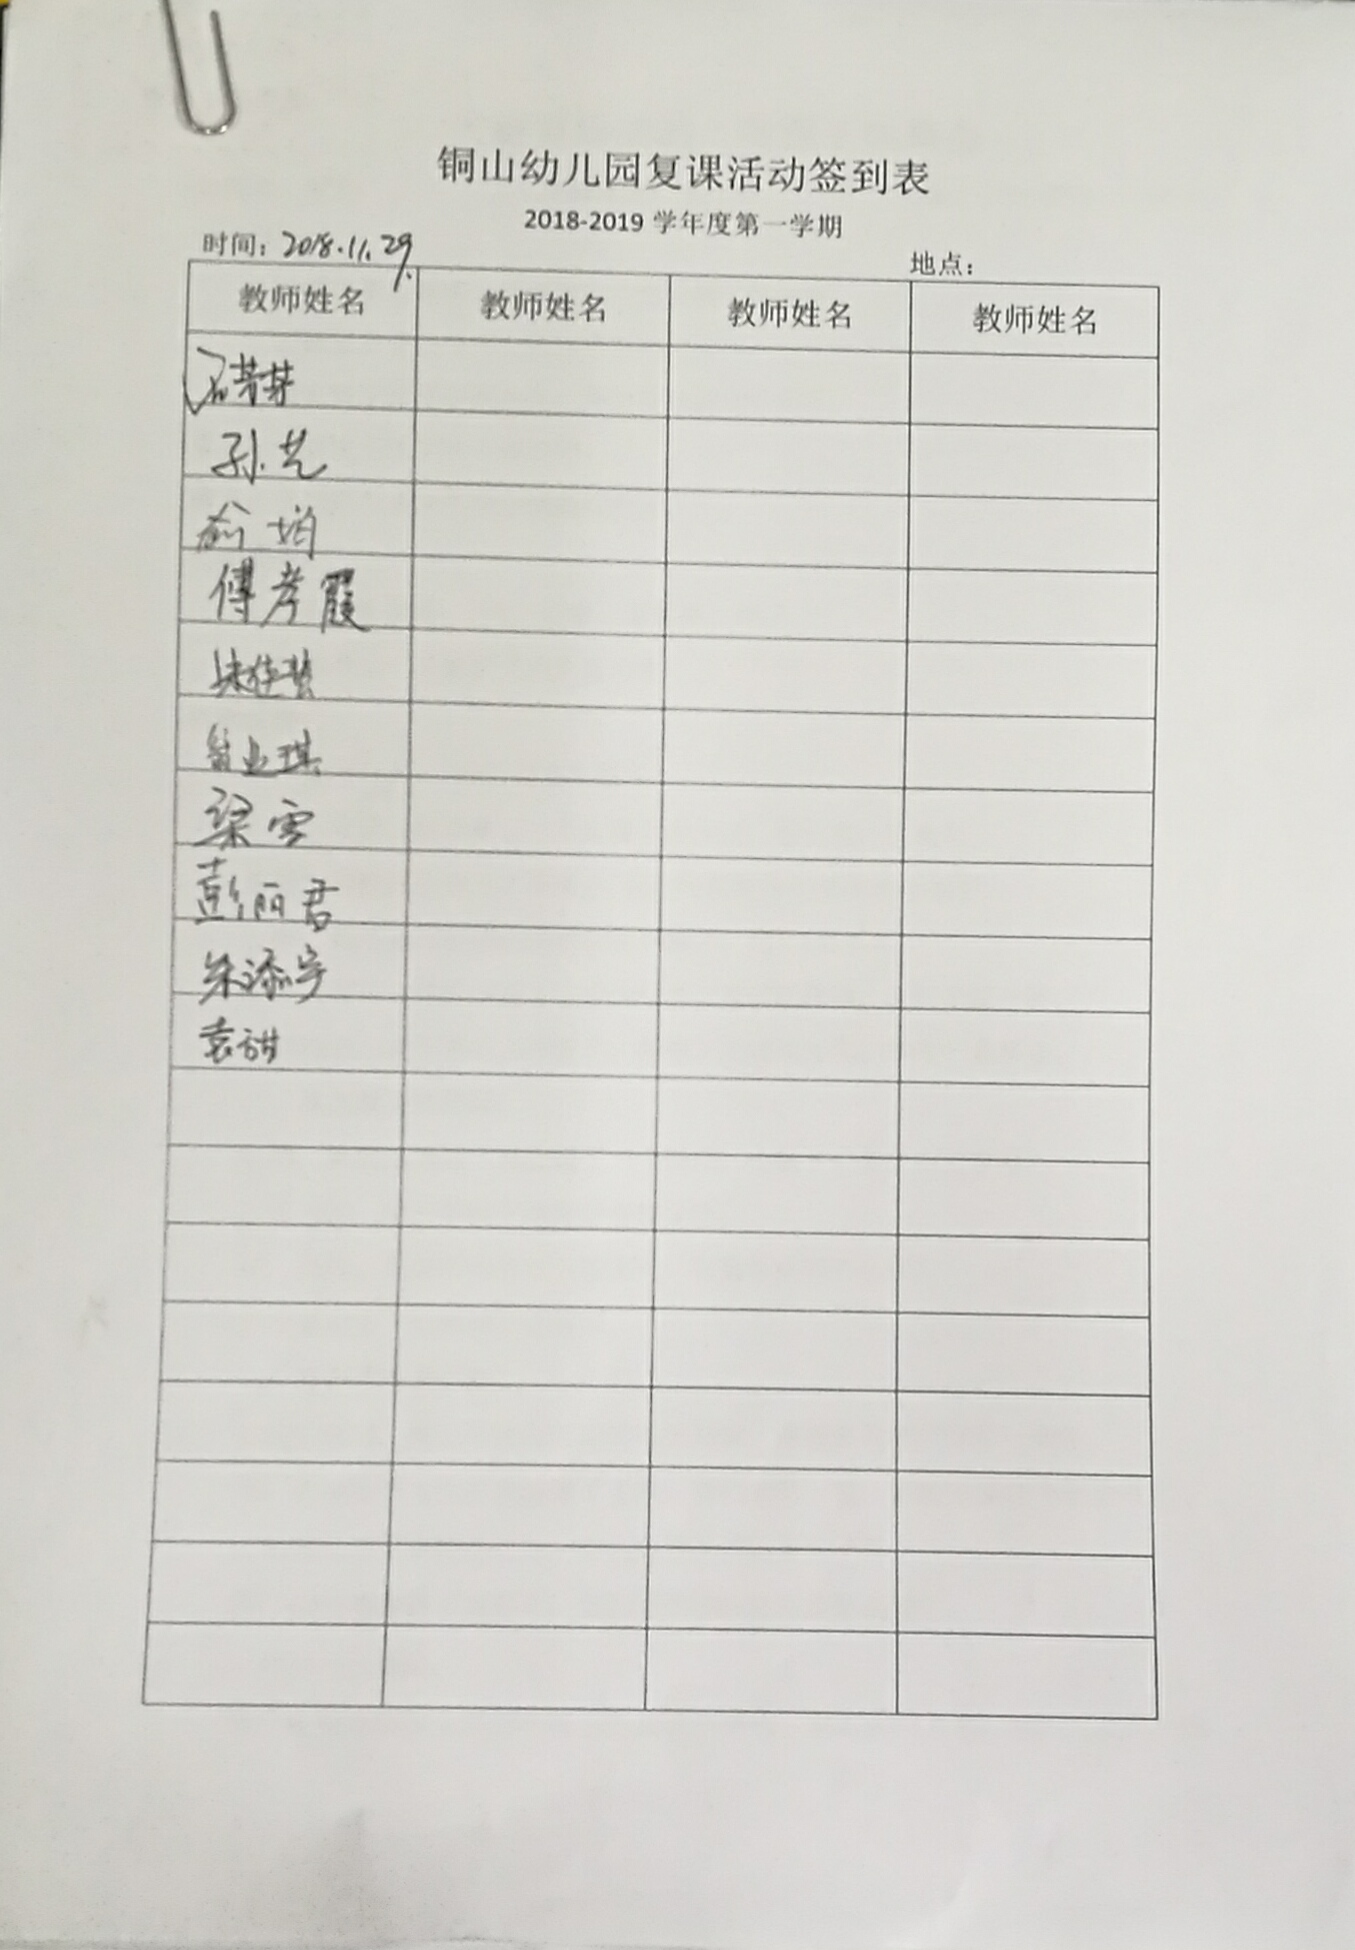 铜山幼儿园复课活动签到表
2018-2019 学年度第一学期
时间：2018.11.29
地点：
教师姓名 教师姓名 教师姓名 教师姓名
孙艺
俞均
傅孝霞
梁雪
彭丽君
朱添宇
袁甜